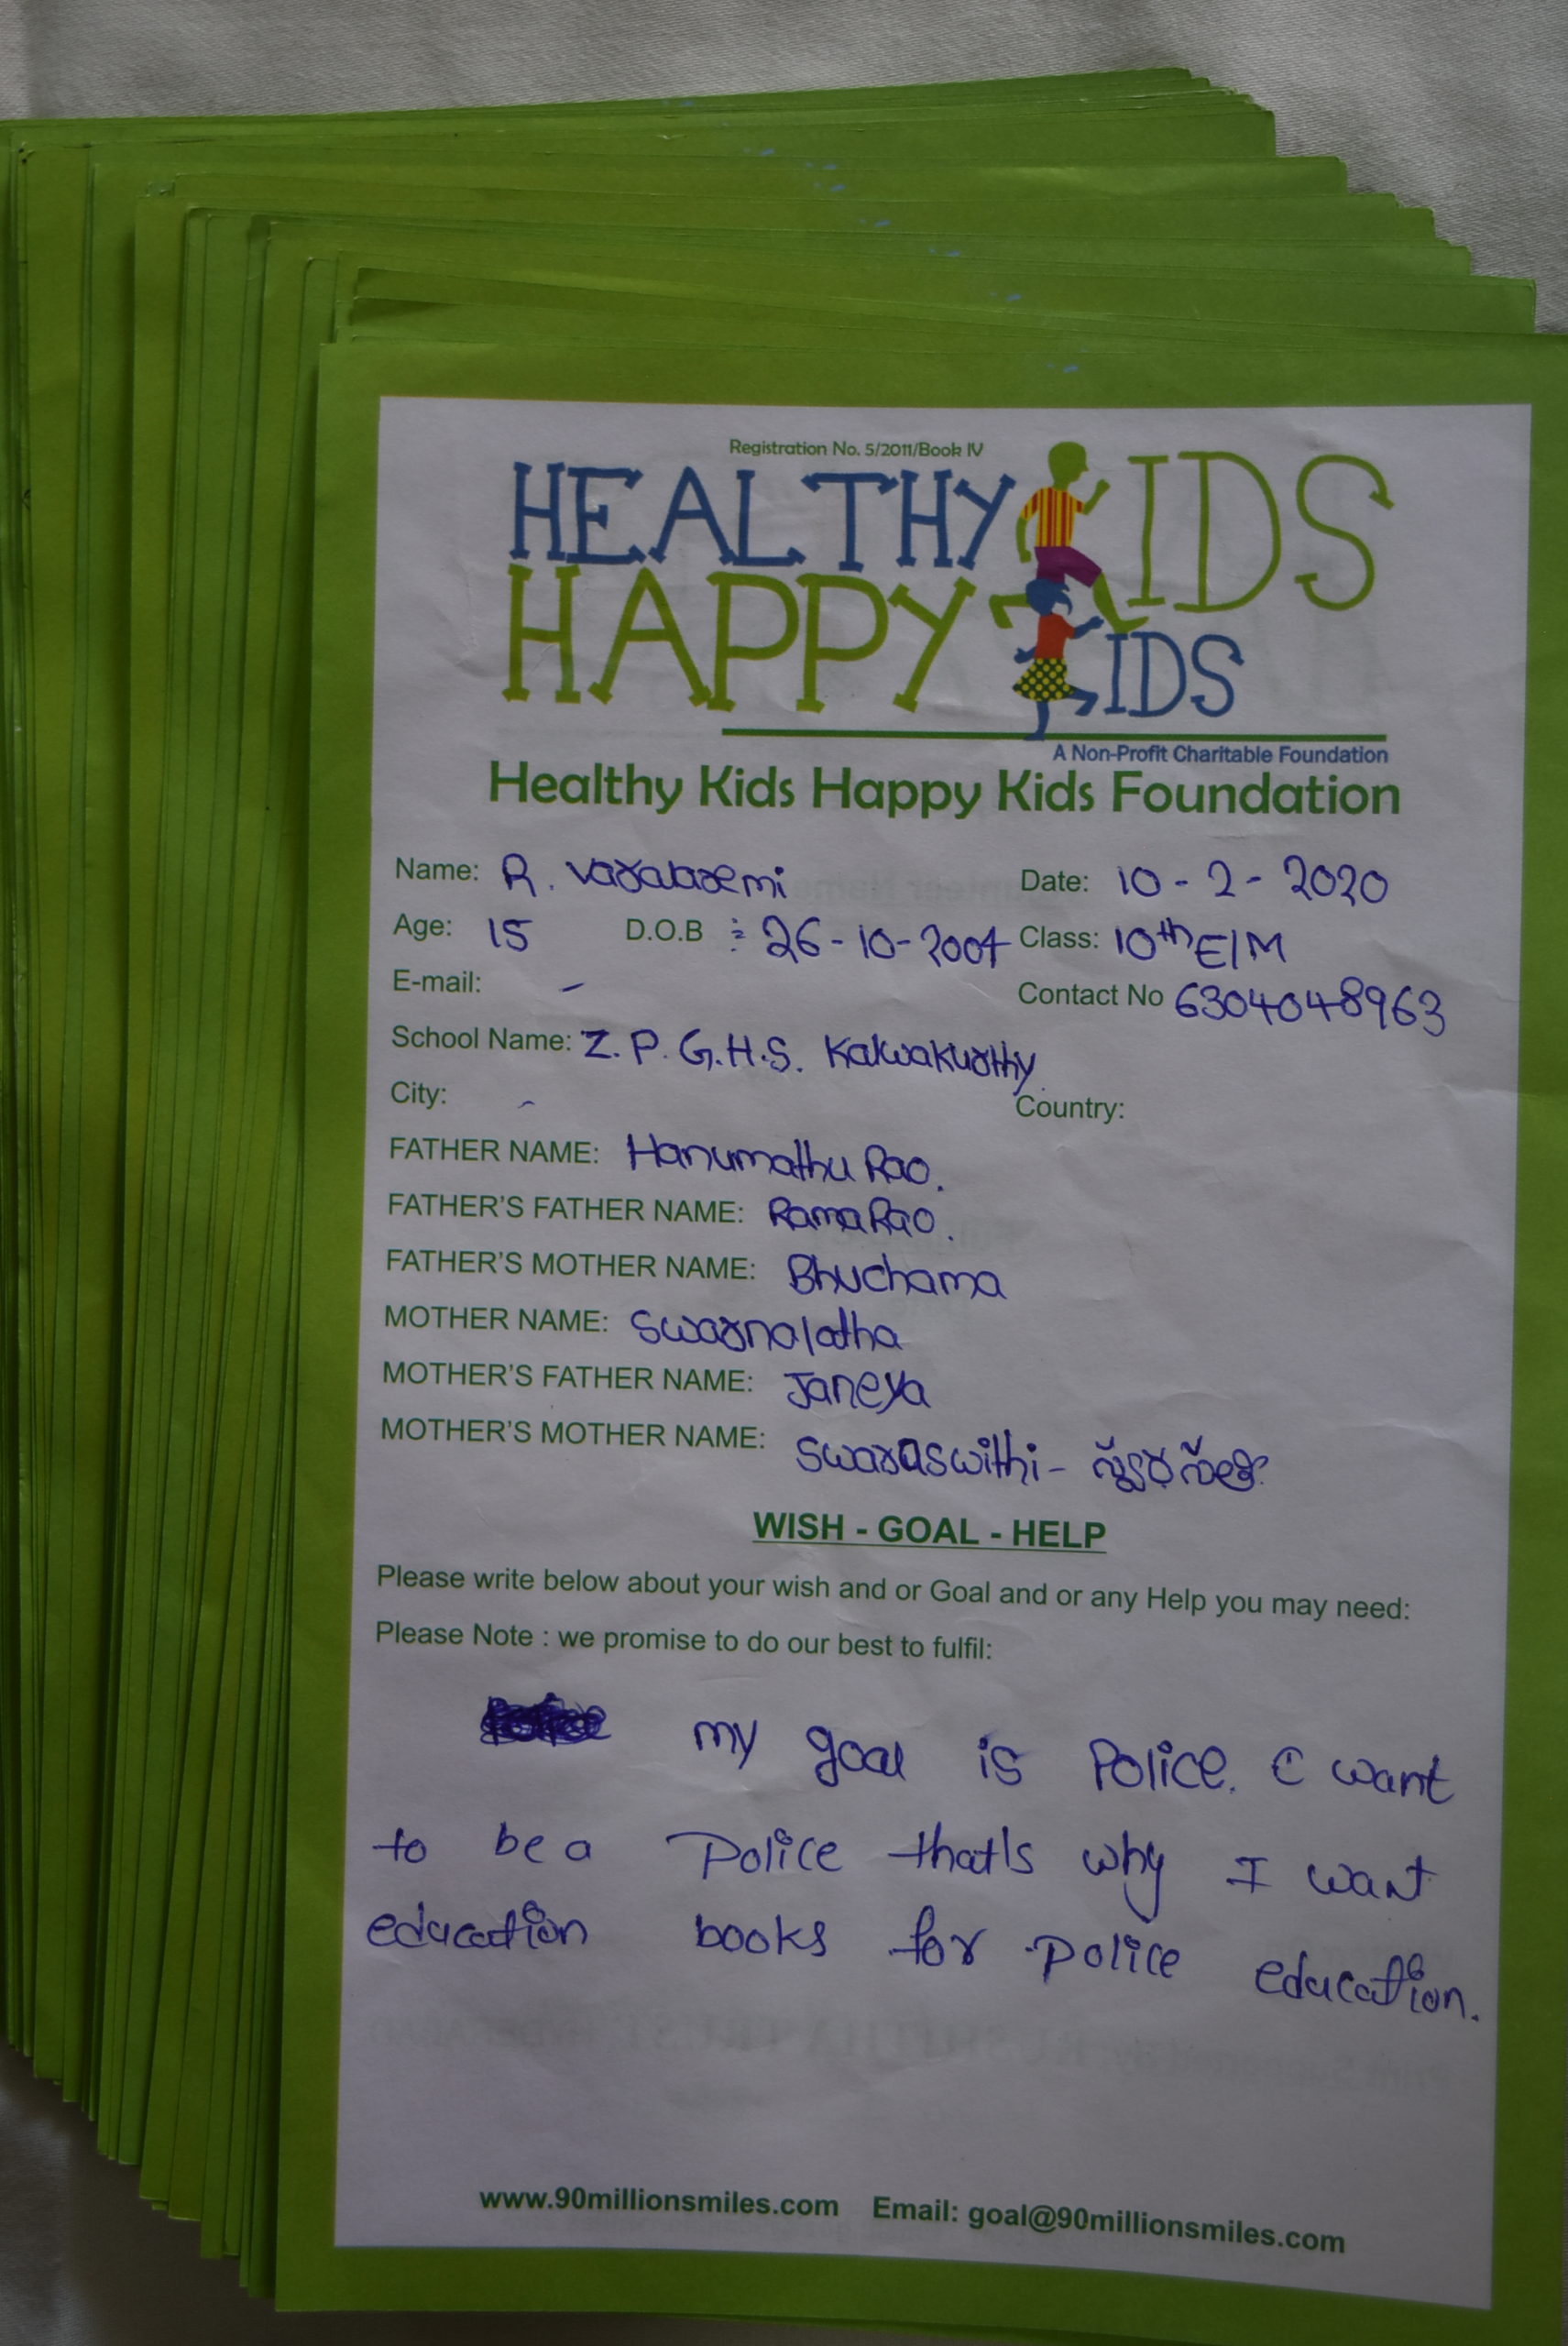 Registration No. 5/2011/Book IV
HEALTHY KIDS
HAPPY KIDS
A Non-Profit Charitable Foundation
Healthy Kids Happy Kids Foundation
Name: R. Varalaxmi Date: 10 - 2 - 2020
Age: 15 D.O.B : 26 - 10 - 2004 Class: 10th E/M
E-mail: - Contact No 6304048963
School Name: Z. P. G.H.S. Kalwakurthy.
City: - Country:
FATHER NAME: Hanumathu Rao.
FATHER'S FATHER NAME: Rama Rao.
FATHER'S MOTHER NAME: Bhuchama
MOTHER NAME: Swarnalatha
MOTHER'S FATHER NAME: Janeya
MOTHER'S MOTHER NAME: Swaraswithi -
WISH - GOAL - HELP
Please write below about your wish and or Goal and or any Help you may need:
Please Note : we promise to do our best to fulfil:
my goal is Police. I want
to be a Police that's why I want
education books for Police education.
www.90millionsmiles.com Email: goal@90millionsmiles.com